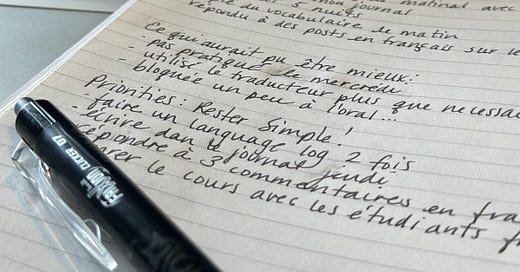 mon journal
matinal avec
5 nuits
du vocabulaire de matin
répondu à des posts en français sur le
Ce qui aurait pu être mieux:
- pas pratiqué le mercredi
- utilisé le traducteur plus que necessa
- bloquée un peu à l'oral...
Priorities: Rester Simple!
- faire un language log 2 fois
- écrire dans le journal jeudi
répondre à 3 commentaires en fra
le cours avec les étudiants f
FRIXION CLICKER 07